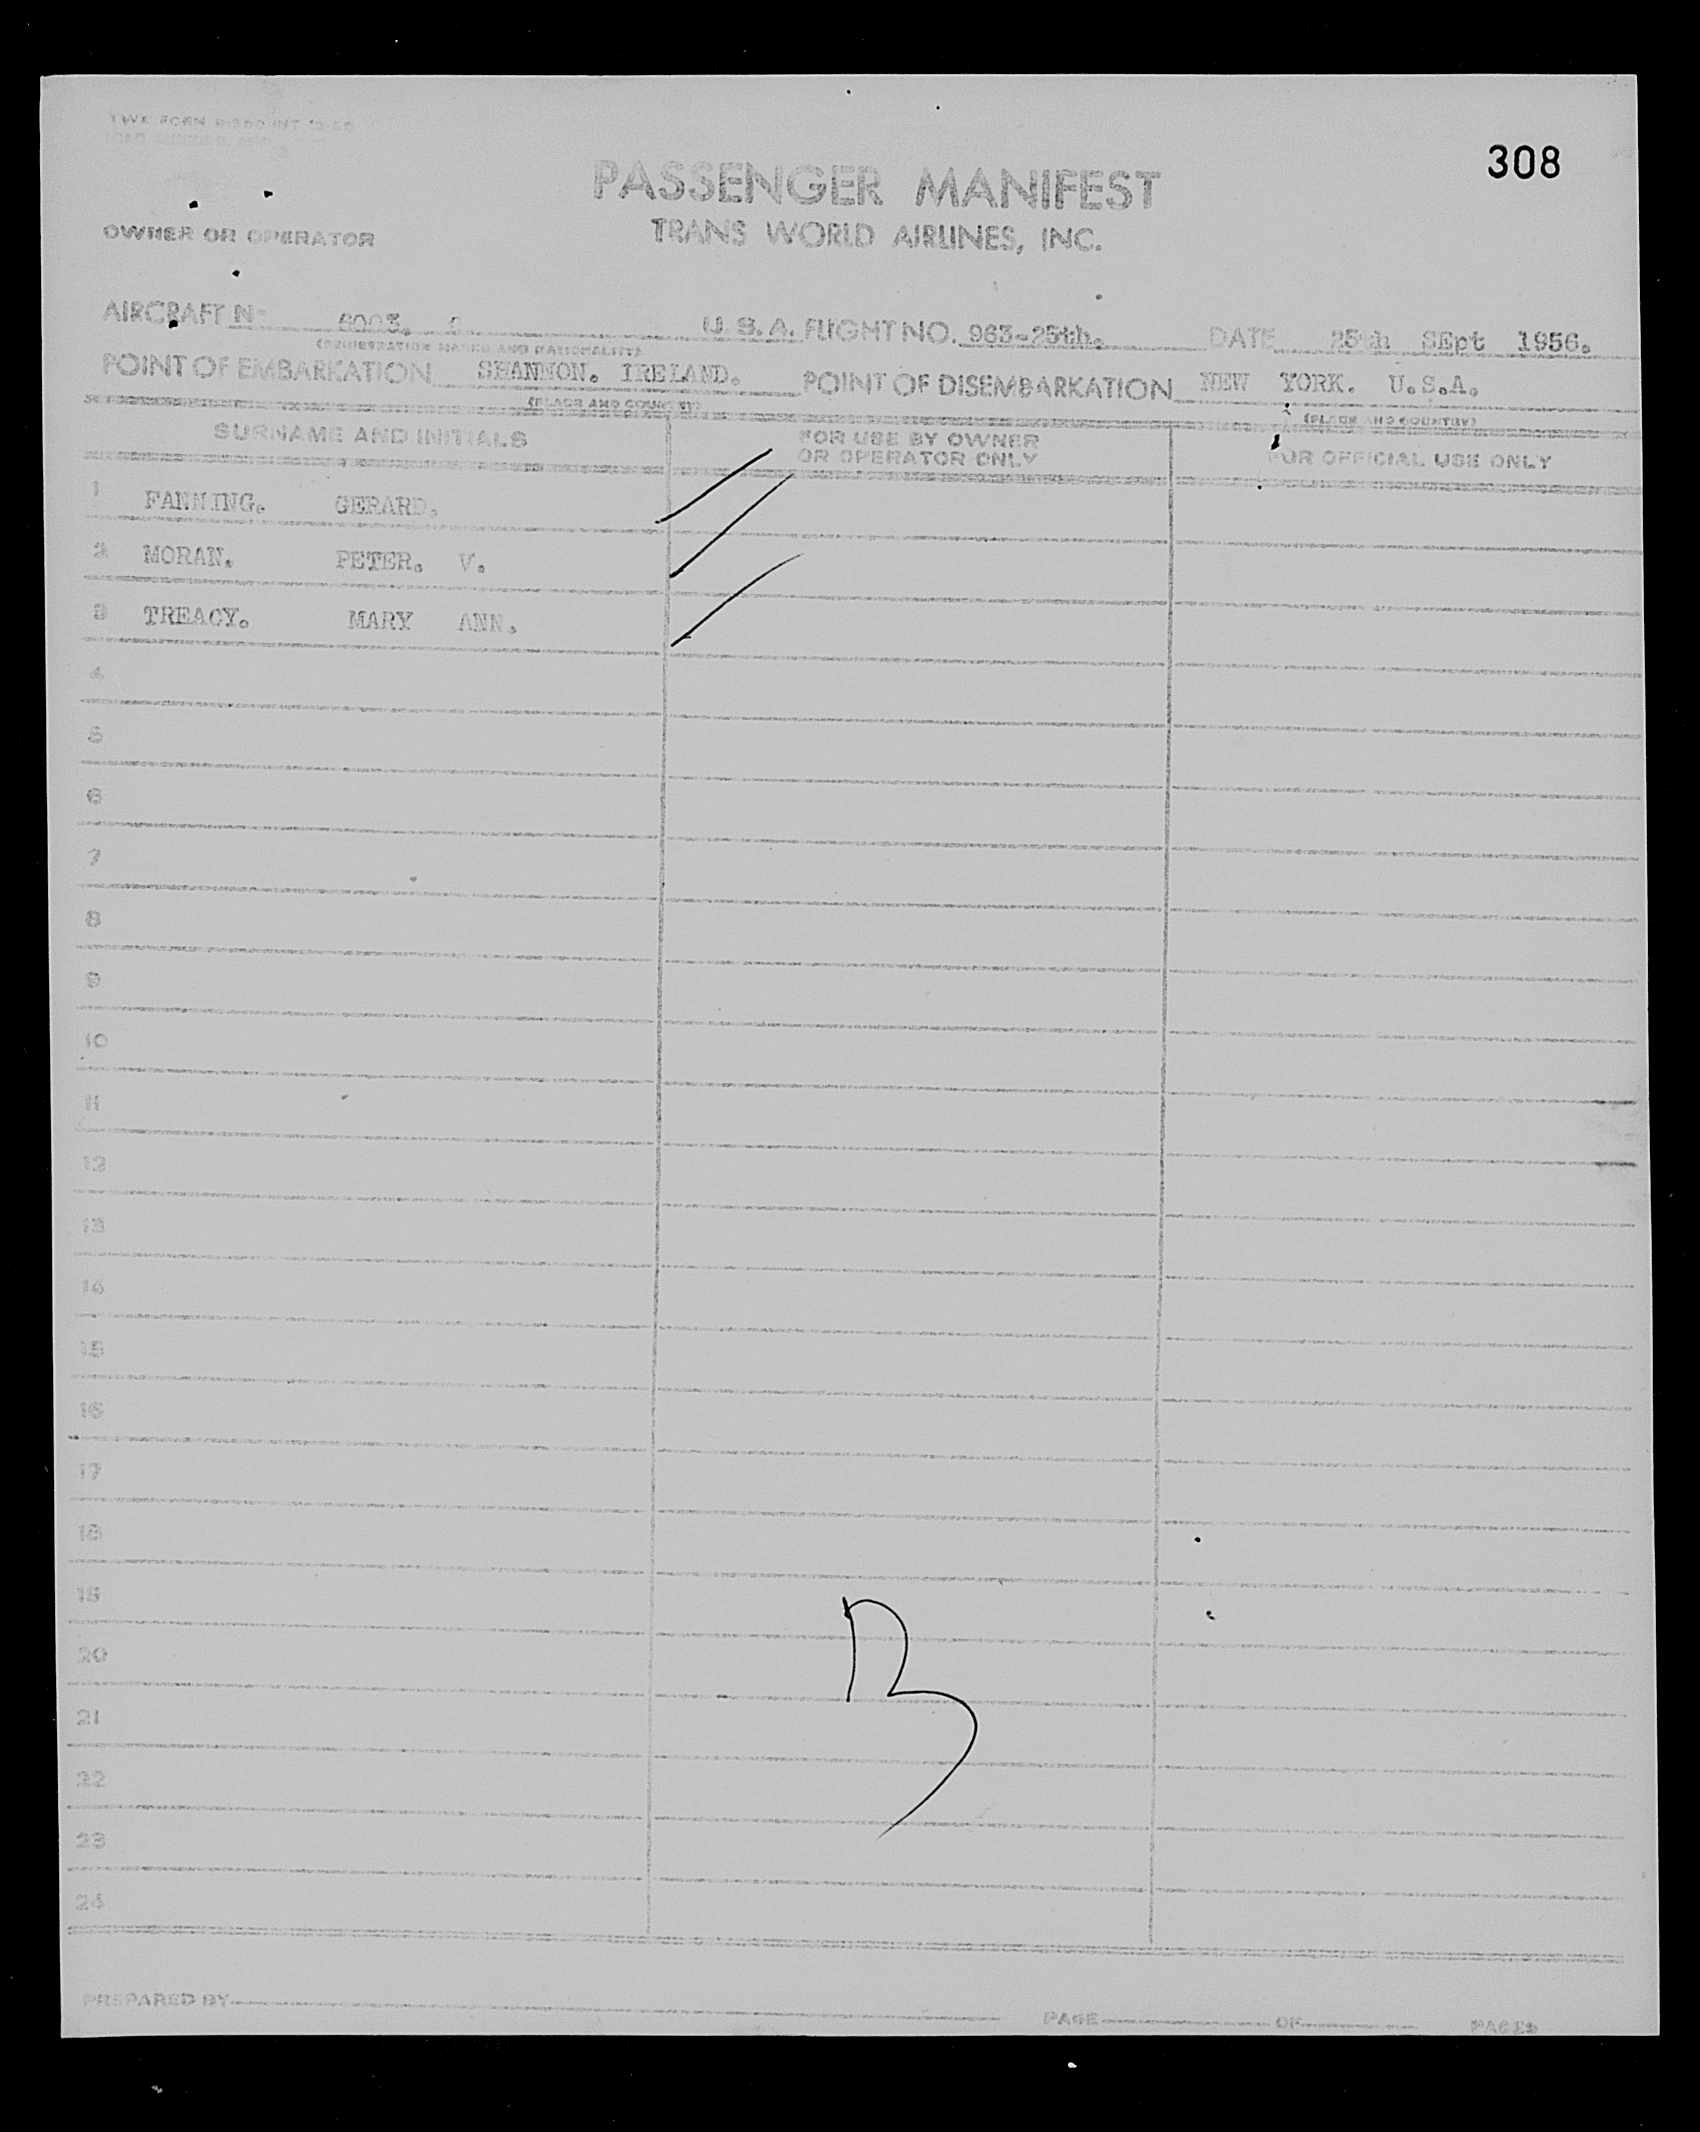 308
PASSENGER MANIFEST
OWNER OR OPERATOR TRANS WORLD AIRLINES, INC.
AIRCRAFT No U.S.A. FLIGHT NO. 963-25th. DATE 25th SEpt 1956.
(REGISTRATION MARKS AND NATIONALITY)
POINT OF EMBARKATION SHANNON. IRELAND. POINT OF DISEMBARKATION NEW YORK. U.S.A.
(PLACE AND COUNTRY) (PLACE AND COUNTRY)
SURNAME AND INITIALS FOR USE BY OWNER OR OPERATOR ONLY FOR OFFICIAL USE ONLY
1 FANNING. GERARD.
2 MORAN. PETER. V.
3 TREACY. MARY ANN.
4
5
6
7
8
9
10
11
12
13
14
15
16
17
18
19
20
21
22
23
24
PREPARED BY PAGE OF PAGES